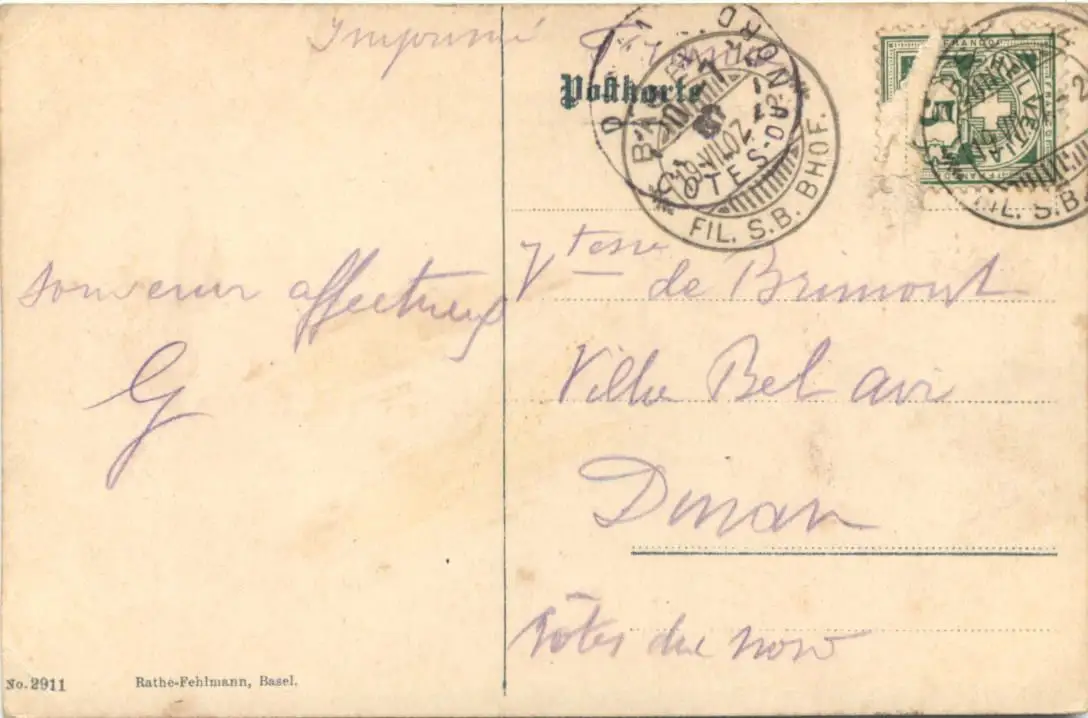 Imprimé France
Postkarte
BASEL
19.VII.07
FIL. S.B. BHOF.
DINAN
COTES-DU-NORD
FRANCO
HELVETIA
5
FIL. S.B.
souvenir affectueux
G
Vtesse
de Brimont
Villa Bel air
Dinan
Côtes du Nord
No. 2911
Rathe-Fehlmann, Basel.